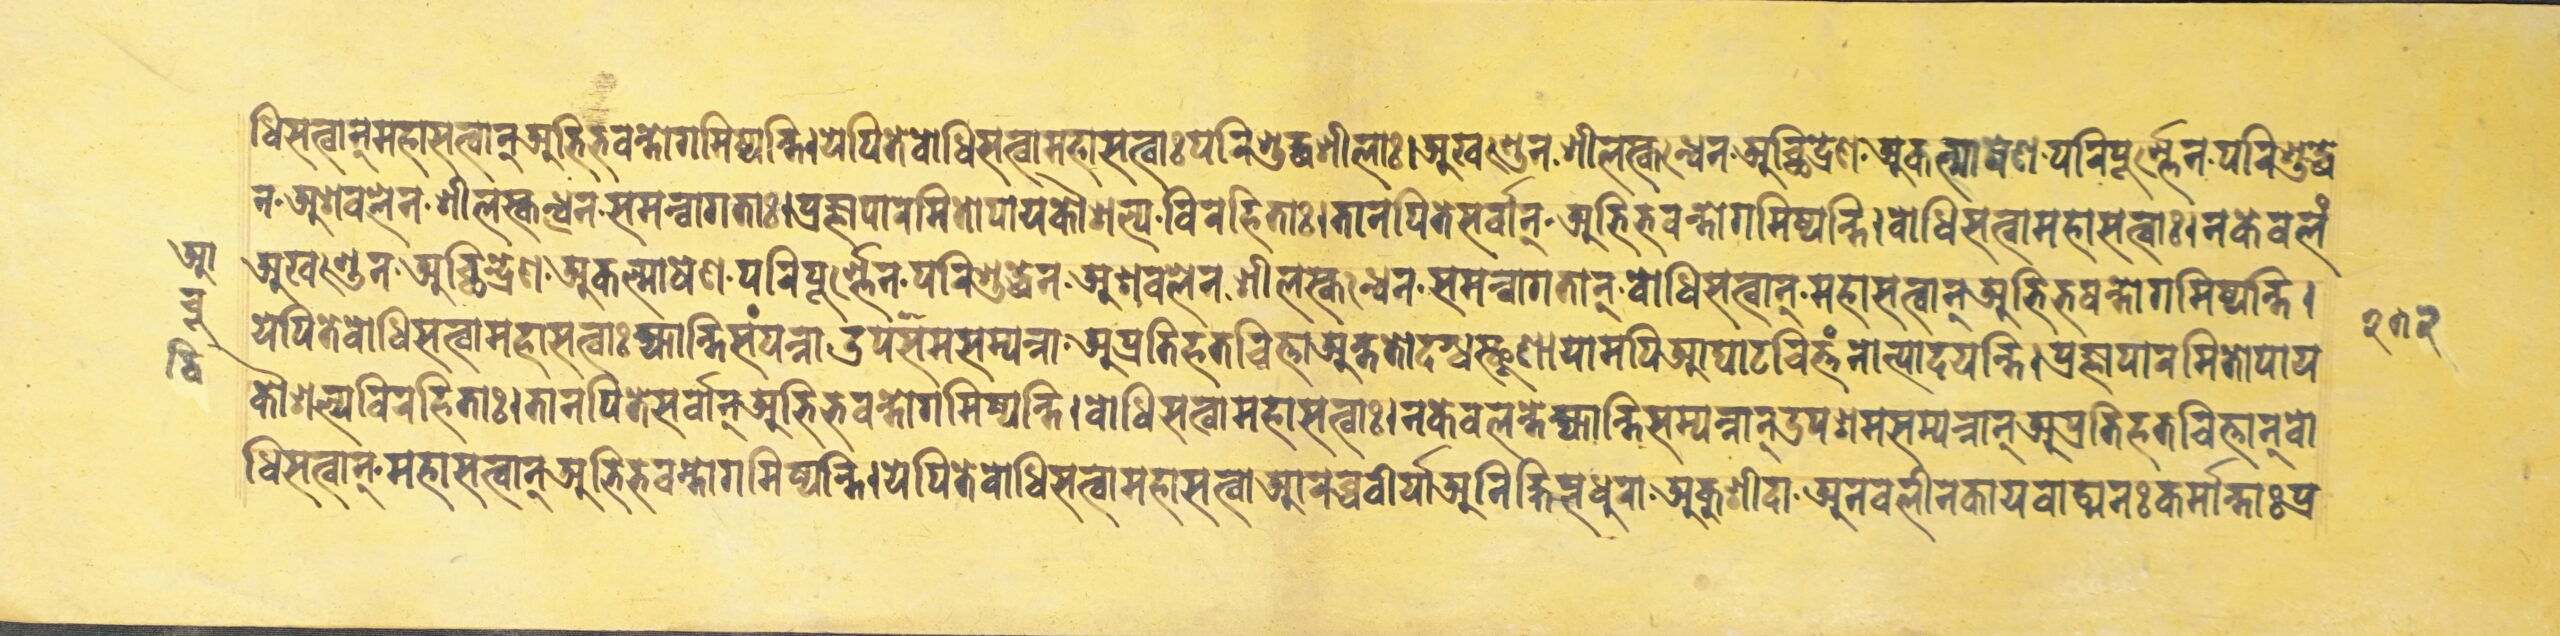 धिसत्वान्महासत्वान्अभिभवन्तोगमिष्यन्ति।येपितेवोधिसत्वामहासत्वाःपरिशुद्धशीलाः।अखण्डेन·शीलस्कन्धेन·अच्छिद्रेण·अकल्माषेण·परिपूर्ण्णेन·परिशुद्धे
न·अशवलेन·शीलस्कन्धेन·समन्वागताः।प्रज्ञापारमितोपायकौशल्य·विरहिताः।तानपितेसर्वान्·अभिभवन्तोगमिष्यन्ति।वोधिसत्वामहासत्वाः।नकेवलं
अखण्डेन·अच्छिद्रेण·अकल्माषेण·परिपूर्ण्णेन·परिशुद्धेन·अशवलेन·शीलस्कन्धेन·समन्वागतान्·वोधिसत्वान्·महासत्वान्·अभिभवन्तोगमिष्यन्ति।
येपितेवोधिसत्वामहासत्वाःक्षान्तिसंपन्ना·उपसमसम्पन्ना·अप्रतिहतचित्ताअन्ततोदग्धस्थूणायामपिआघाटचित्तंनोत्पादयन्ति।प्रज्ञापारमितोपाय
कौशल्यविरहिताः।तानपितेसर्वान्अभिभवन्तोगमिष्यन्ति।वोधिसत्वामहासत्वाः।नकेवलन्तेक्षान्तिसम्पन्नान्उपशमसम्पन्नान्अप्रतिहतचित्तान्वो
धिसत्वान्·महासत्वान्अभिभवन्तोगमिष्यन्ति।येपितेवोधिसत्वामहासत्वाआरब्धवीर्याअनिक्षिप्तधुरा·अकुशीदा·अनवलीनकायवाङ्मनःकर्मान्ताःप्र
आ
द्वि